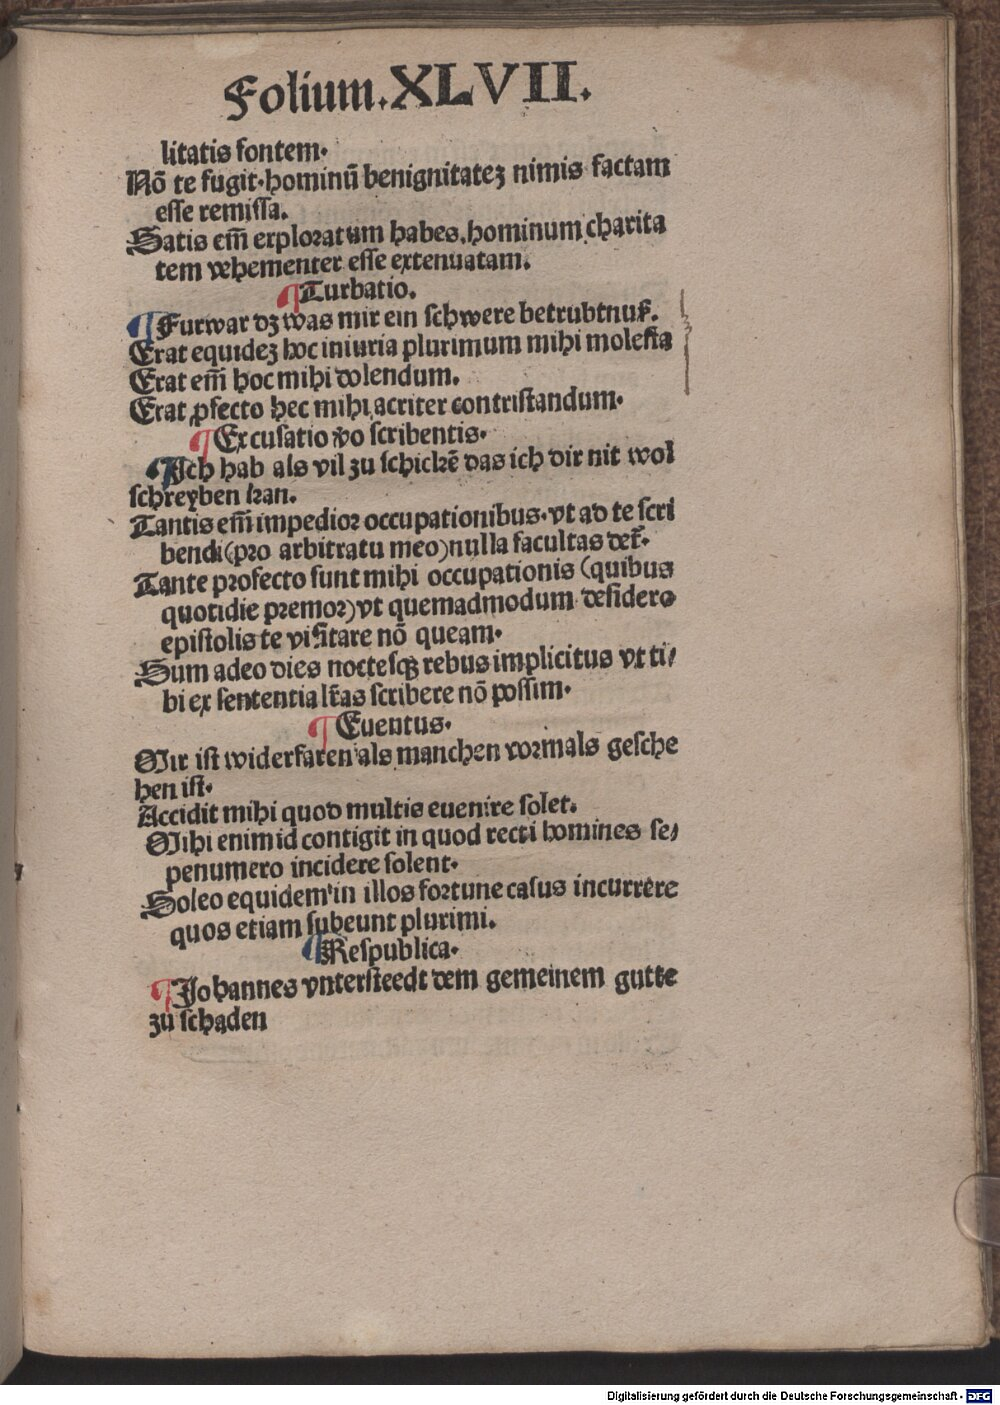 Folium.XLVII.
litatis fontem.
Nō te fugit.hominū benignitateʒ nimis factam
esse remissa.
Satis em̄ exploratum habes.hominum charita
tem vehementer esse extenuatam.
¶Turbatio.
¶Furwar dʒ was mir ein schwere betrubtnuß.
Erat equideʒ hoc iniuria plurimum mihi molesta
Erat em̄ hoc mihi dolendum.
Erat ꝓfecto hec mihi acriter contristandum.
¶Excusatio v̄o scribentis.
¶Ich hab als vil zu schickē das ich dir nit wol
schreyben kan.
Tantis em̄ impedior occupationibus.vt ad te scri
bendi(pro arbitratu meo)nulla facultas det̄.
Tante profecto sunt mihi occupationis (quibus
quotidie premor)vt quemadmodum desidero
epistolis te visitare nō queam.
Sum adeo dies noctesqꝫ rebus implicitus vt ti/
bi ex sententia lr̄as scribere nō possim.
¶Euentus.
Mir ist widerfaren als manchen vormals gesche
hen ist.
Accidit mihi quod multis euenire solet.
Mihi enim id contigit in quod recti homines se/
penumero incidere solent.
Soleo equidem in illos fortune casus incurrere
quos etiam subeunt plurimi.
¶Respublica.
¶Johannes vntersteedt dem gemeinem gutte
zu schaden
Digitalisierung gefördert durch die Deutsche Forschungsgemeinschaft - DFG